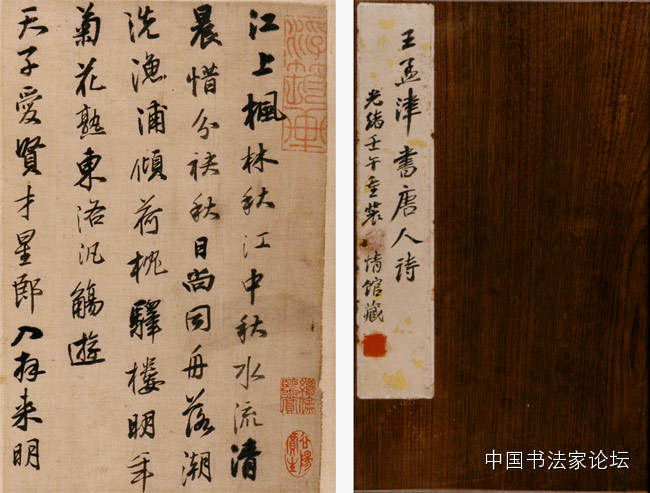 江上楓林秋江中秋水流清
晨惜分袂秋日尚同舟落潮
洗漁浦傾荷枕驛樓明年
菊花熟東洛汎觴遊
天子愛賢才星郎入拜来明
王孟津書唐人詩
光緒壬午重裝 情館藏
中国书法家论坛